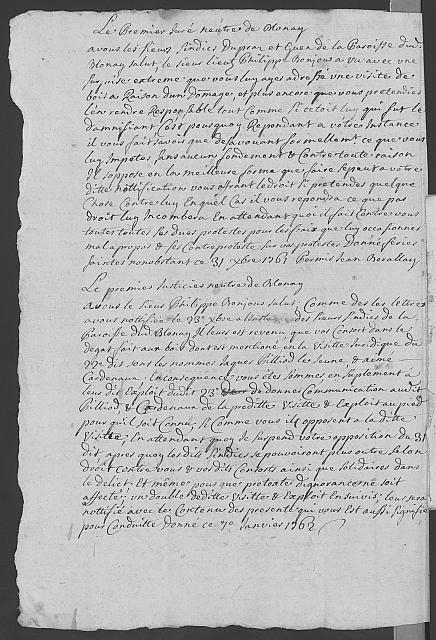 Le Premier Juré neutre de Blonay
a vous les sieurs sindics Dupraz et Guex de la Paroisse dud.
Blonay salut, le sieur lieut. Philippe Bonjour a vu avec une
surprise extreme que vous luy ayes adressé une visite de
bois a Raison d'un Domage, et plus encore que vous pretendies
l'en rendre Responsable tout comme si c'etoit luy qui fut le
damnifiant C'est pourquoy Repondant a vôtre Instance
il vous fait savoir que desavouant formellemt. ce que vous
luy Imputes sans aucun fondement & Contre toute raison
Il s'oppose en la meilleure forme que faire se peut a votre
ditte notification vous ofrant le droit si pretendes quelque
Chose Contre luy En quel Cas il vous repondra ce que par
droit luy Incombera En attendant quoi il fait Contre vous
toutes ses dues protestes pour les fraix que luy ocasionnes
mal a propos & ses Contreproteste sur vos protestes Donné feries
saintes nonobstant ce 31 xbre 1761 Permis Jean
Le premier Justicier neutre de Blonay
a vous le sieur Philippe Bonjour salut; Comme des les lettres
a vous notifiée le 23e xbre a l'Instance des sieurs sindics de la
Paroisse dud. Blonay Il leur est revenu que vos Consort dans le
degat fait aux bois dont est mentioné en la Visitte Juridique du
22e dit sont les nommes Jaques Pilliod le Jeune & aimé
Cardenaux; En consequence vous êtes sommés en suplement a
leur dit Exploit du dit 23e de donner Communication au dit
Pilliod, & Cardenaux de la preditte Visitte & Exploit au pied
pour qu'il soit Connu, si Comme vous il s'opposent a la ditte
Visitte; En attendant quoy se suspend votre opposition du 31
dit apres quoy les dits sindics se pouvoiront plus outre selon
droit Contre vous & vos dits Consorts ainsi que solidaires dans
le delict; Et même pour que pretexte d'ignorance ne soit
affecté; un double de ditte Visitte & Exploit En suivis; leur sera
notiffié avec le Contenu des presente qui vous Est aussi signifié
pour Conduitte Donné ce 7e Janvier 1762